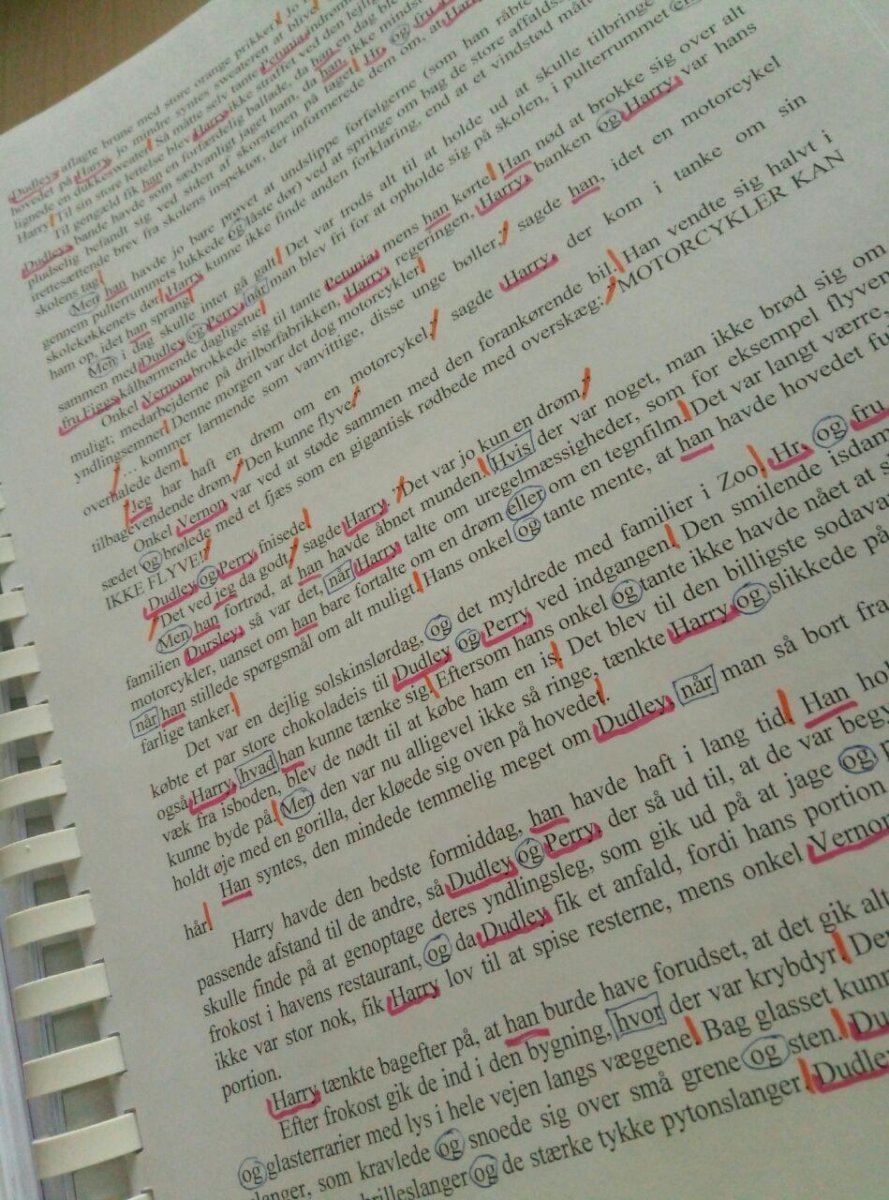 Dudleys aflagte brune med store orange prikker! Jo
hovedet på Harry, jo mindre syntes sweateren at blive
lignede en dukkesweater! Så måtte selv tante Petunia indrømme
Harry! Til sin store lettelse blev Harry ikke straffet ved den lejlighed
Til gengæld fik han en forfærdelig ballade, da han en dag blev
Dudleys bande havde som sædvanligt jaget ham, da han, ikke mindst
pludselig befandt sig ved siden af skorstenen på taget! Hr. og fru
irettesættende brev fra skolens inspektør, der informerede dem om, at Harry
skolens tag!
Men han havde jo bare prøvet at undslippe forfølgerne (som han råbte
gennem pulterrummets lukkede og låste dør) ved at springe om bag de store affalds
skolekøkkenets dør! Harry kunne ikke finde anden forklaring, end at et vindstød måtte
ham op, idet han sprang!
Men i dag skulle intet gå galt! Det var trods alt til at holde ud at skulle tilbringe
sammen med Dudley og Perry, når man blev fri for at opholde sig på skolen, i pulterrummet
fru Figgs kålhørmende dagligstue!
Onkel Vernon brokkede sig til tante Petunia, mens han kørte! Han nød at brokke sig over alt
muligt; medarbejderne på drilborfabrikken, Harry, regeringen, Harry, banken og Harry var hans
yndlingsemner! Denne morgen var det dog motorcykler!
"... kommer larmende som vanvittige, disse unge bøller," sagde han, idet en motorcykel
overhalede dem!
"Jeg har haft en drøm om en motorcykel," sagde Harry, der kom i tanke om sin
tilbagevendende drøm. "Den kunne flyve."
Onkel Vernon var ved at støde sammen med den forankørende bil! Han vendte sig halvt i
sædet og brølede med et fjæs som en gigantisk rødbede med overskæg: "MOTORCYKLER KAN
IKKE FLYVE!"
Dudley og Perry fnisede!
"Det ved jeg da godt," sagde Harry. "Det var jo kun en drøm."
Men han fortrød, at han havde åbnet munden. Hvis der var noget, man ikke brød sig om
familien Dursley, så var det, når Harry talte om uregelmæssigheder, som for eksempel flyven
motorcykler, uanset om han bare fortalte om en drøm eller om en tegnfilm! Det var langt værre,
når han stillede spørgsmål om alt muligt! Hans onkel og tante mente, at han havde hovedet fu
farlige tanker.
Det var en dejlig solskinslørdag, og det myldrede med familier i Zoo! Hr. og fru
købte et par store chokoladeis til Dudley og Perry ved indgangen! Den smilende isdam
også Harry, hvad han kunne tænke sig. Eftersom hans onkel og tante ikke havde nået at s
væk fra isboden, blev de nødt til at købe ham en is! Det blev til den billigste sodava
kunne byde på. Men den var nu alligevel ikke så ringe, tænkte Harry og slikkede på
holdt øje med en gorilla, der kløede sig oven på hovedet!
Han syntes, den mindede temmelig meget om Dudley, når man så bort fra
hår!
Harry havde den bedste formiddag, han havde haft i lang tid! Han hol
passende afstand til de andre, så Dudley og Perry, der så ud til, at de var begy
skulle finde på at genoptage deres yndlingsleg, som gik ud på at jage og
frokost i havens restaurant, og da Dudley fik et anfald, fordi hans portion
ikke var stor nok, fik Harry lov til at spise resterne, mens onkel Vernon
portion.
Harry tænkte bagefter på, at han burde have forudset, at det gik alt
Efter frokost gik de ind i den bygning, hvor der var krybdyr! De
og glasterrarier med lys i hele vejen langs væggene! Bag glasset kunn
langer, som kravlede og snoede sig over små grene og sten. Du
brilleslanger og de stærke tykke pytonslanger! Dudle